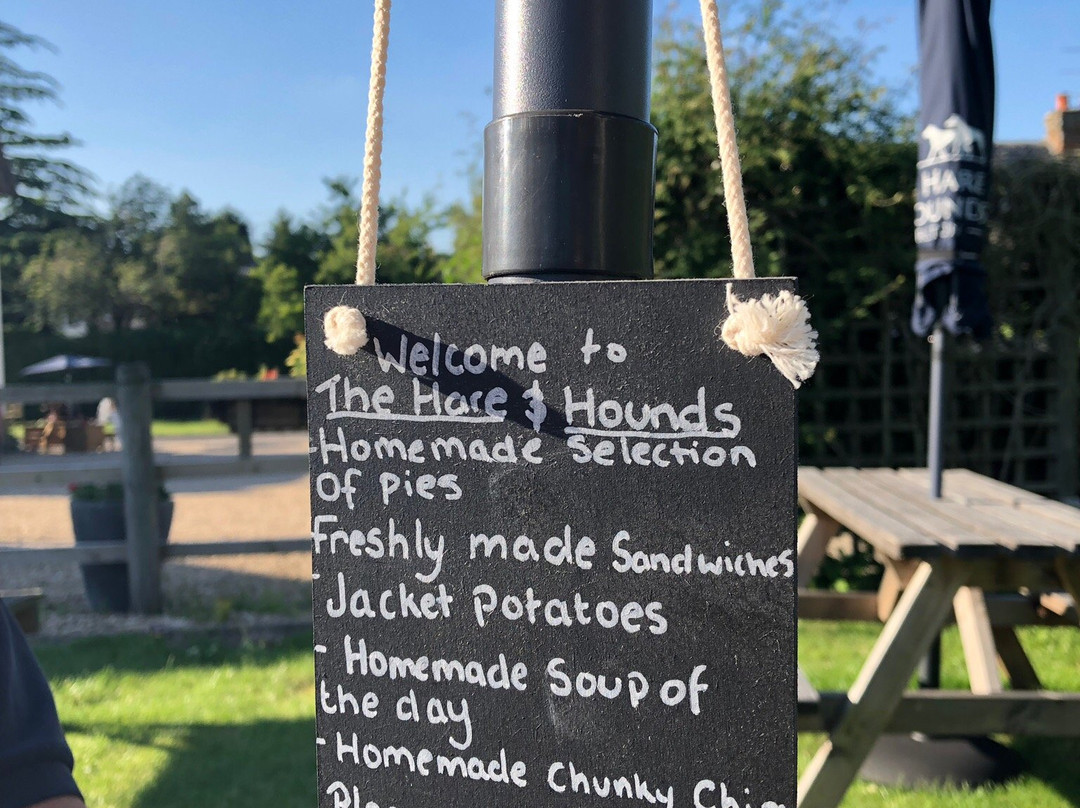 Welcome to
The Hare & Hounds
-Homemade Selection
of pies
Freshly made Sandwiches
- Jacket Potatoes
- Homemade Soup of
the day
- Homemade Chunky
HARE